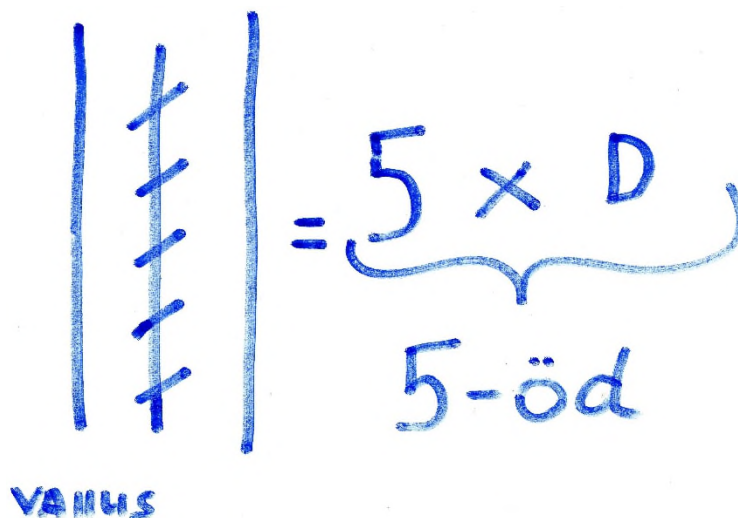 = 5 × D
5-öd
vallus